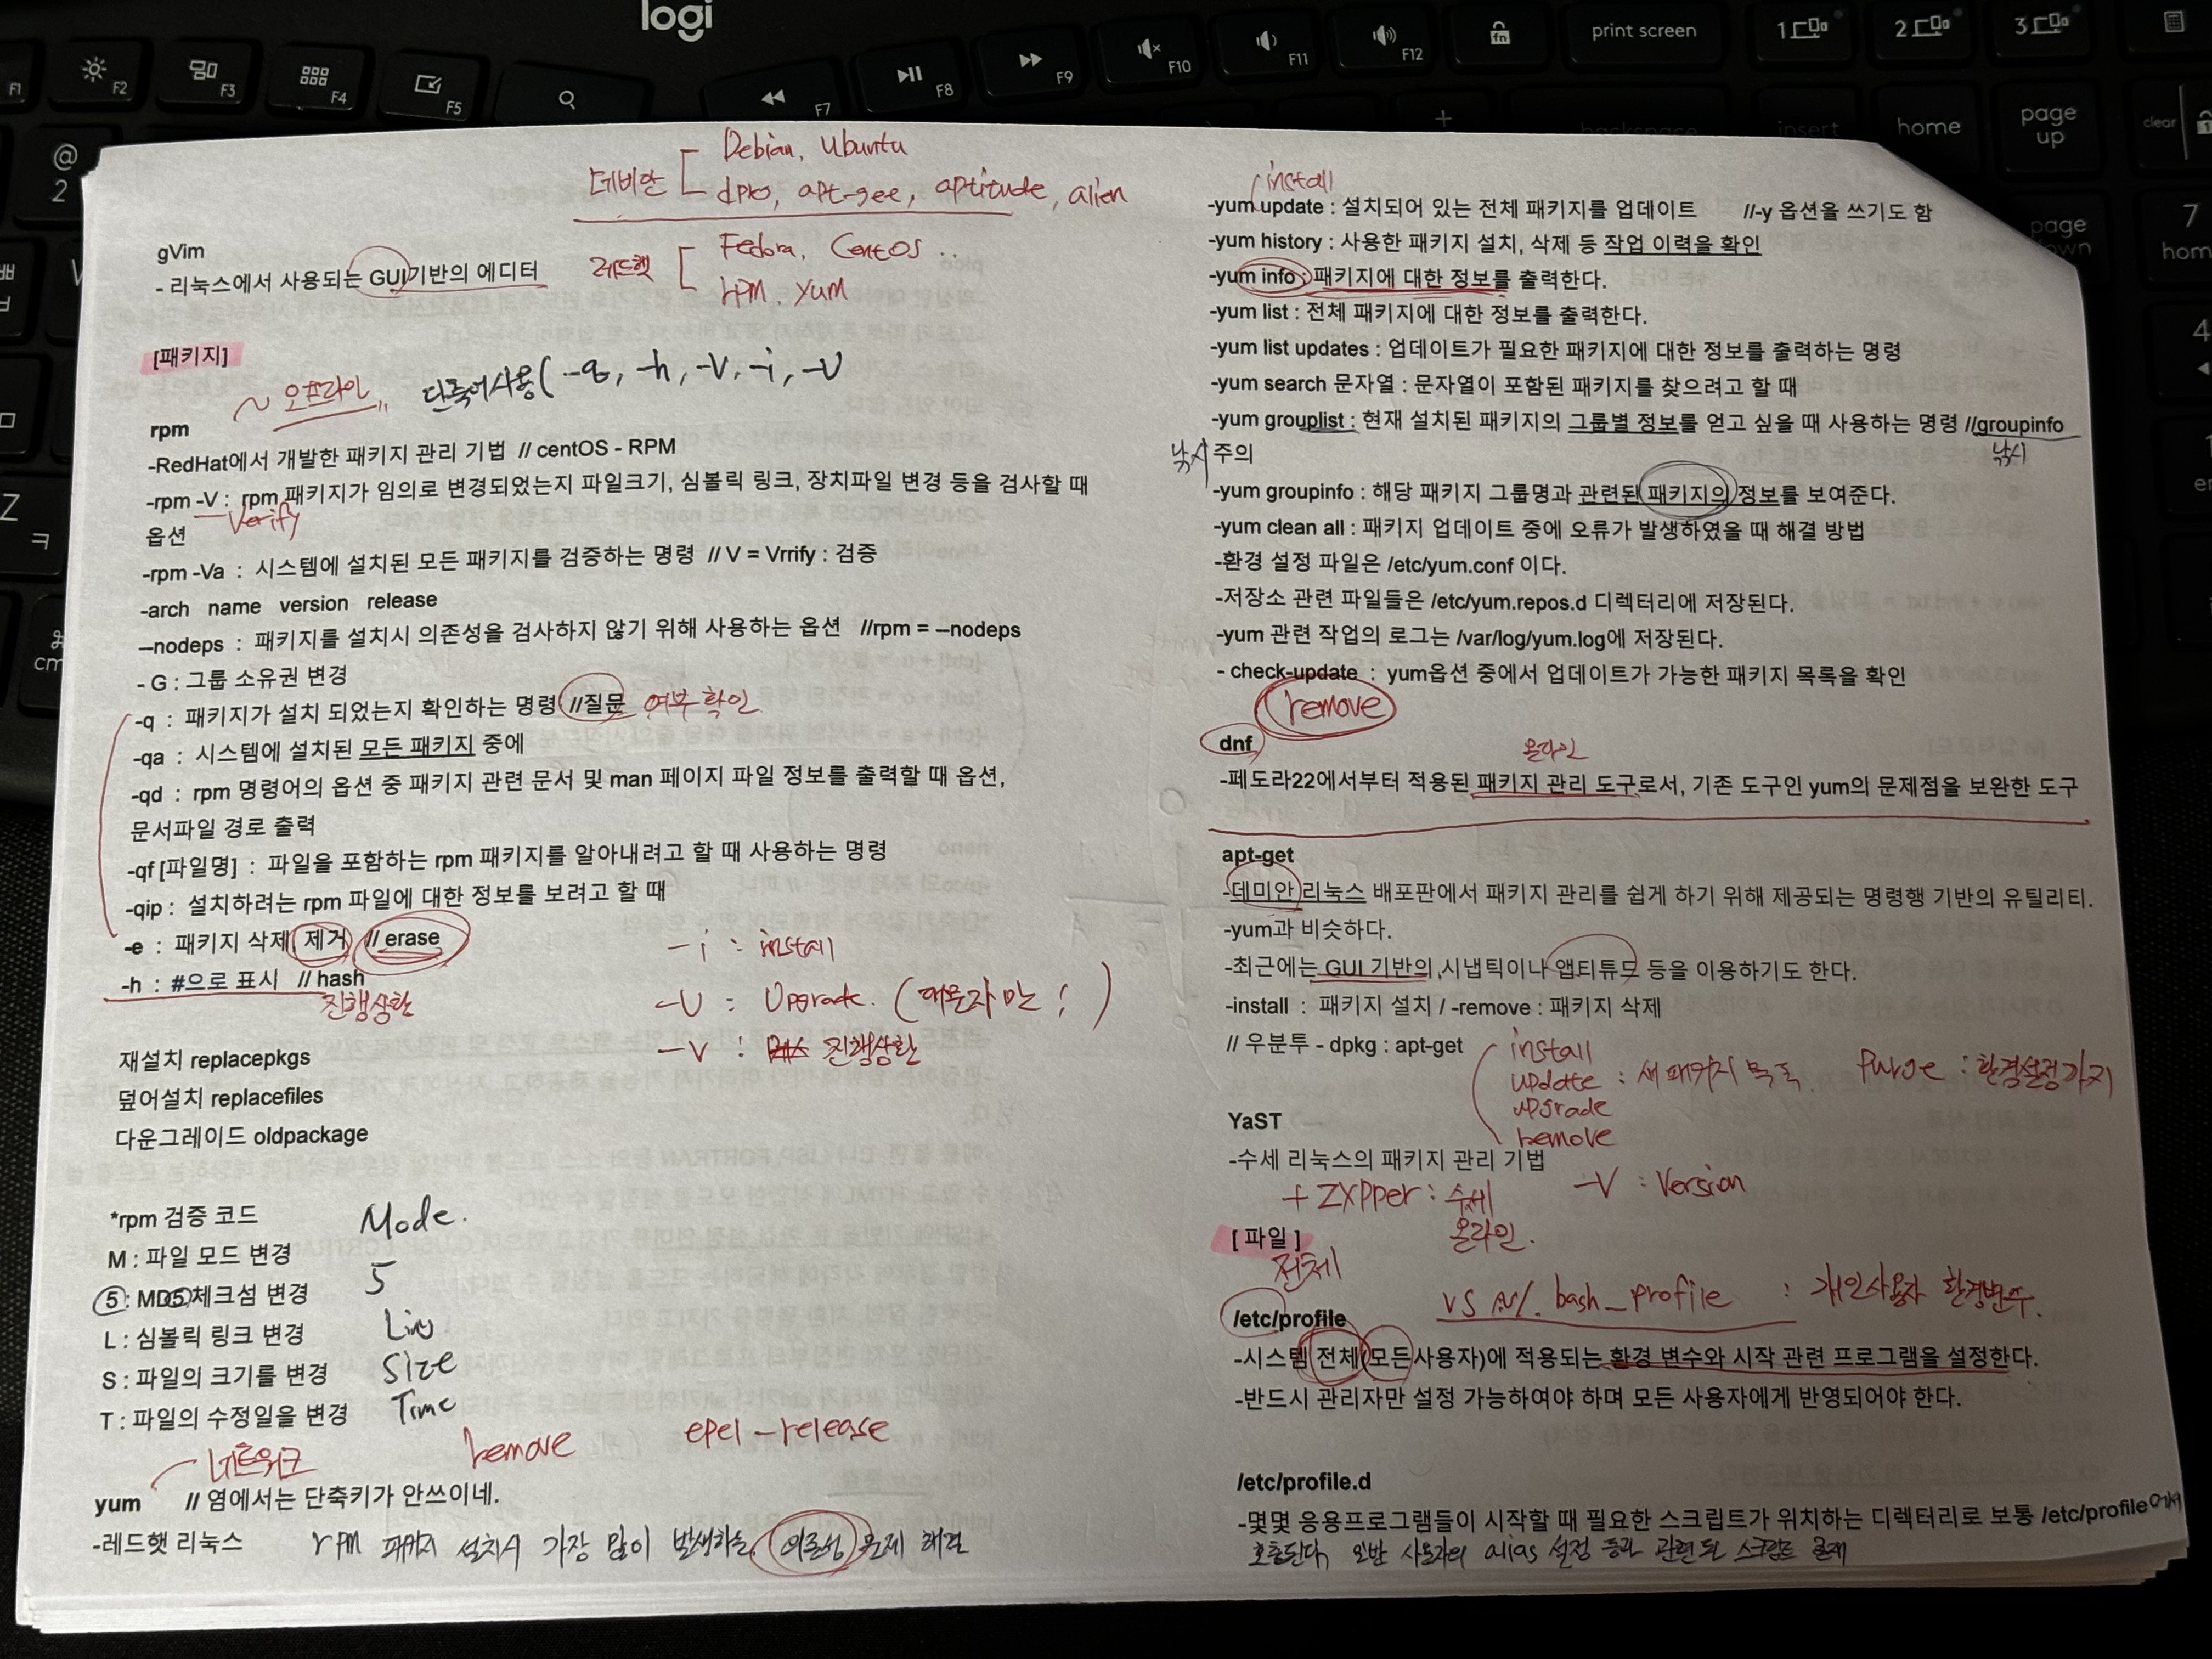 logi
F1
F2
F3
F4
F5
F7
F8
F9
F10
F11
F12
fn
print screen
1
2
3
@
2
Z
ㅋ
backspace
insert
home
page
up
clear
page
down
7
home
4
데비안
Debian, Ubuntu
dpkg, apt-get, aptitude, alien
레드햇
Fedora, CentOS ..
rpm, yum
gVim
- 리눅스에서 사용되는 GUI기반의 에디터
[패키지]
~ 오프라인 단축어사용( -q, -h, -V, -i, -U
rpm
-RedHat에서 개발한 패키지 관리 기법 // centOS - RPM
-rpm -V : rpm 패키지가 임의로 변경되었는지 파일크기, 심볼릭 링크, 장치파일 변경 등을 검사할 때
Verify
옵션
-rpm -Va : 시스템에 설치된 모든 패키지를 검증하는 명령 // V = Vrrify : 검증
-arch name version release
–nodeps : 패키지를 설치시 의존성을 검사하지 않기 위해 사용하는 옵션 //rpm = –nodeps
- G : 그룹 소유권 변경
-q : 패키지가 설치 되었는지 확인하는 명령 //질문 여부 확인
-qa : 시스템에 설치된 모든 패키지 중에
-qd : rpm 명령어의 옵션 중 패키지 관련 문서 및 man 페이지 파일 정보를 출력할 때 옵션,
문서파일 경로 출력
-qf [파일명] : 파일을 포함하는 rpm 패키지를 알아내려고 할 때 사용하는 명령
-qip : 설치하려는 rpm 파일에 대한 정보를 보려고 할 때
-e : 패키지 삭제 제거 // erase
-h : #으로 표시 // hash
진행상황
-i : install
-U : Upgrade. (대문자만 ! )
-v : 진행상황
재설치 replacepkgs
덮어설치 replacefiles
다운그레이드 oldpackage
*rpm 검증 코드
M : 파일 모드 변경 Mode.
5 : MD5체크섬 변경 5
L : 심볼릭 링크 변경
S : 파일의 크기를 변경 Size
T : 파일의 수정일을 변경 Time
네트워크 remove epel - release
yum // 염에서는 단축키가 안쓰이네.
-레드햇 리눅스 rpm 패키지 설치시 가장 많이 발생하는 의존성 문제 해결
install
-yum update : 설치되어 있는 전체 패키지를 업데이트 //-y 옵션을 쓰기도 함
-yum history : 사용한 패키지 설치, 삭제 등 작업 이력을 확인
-yum info : 패키지에 대한 정보를 출력한다.
-yum list : 전체 패키지에 대한 정보를 출력한다.
-yum list updates : 업데이트가 필요한 패키지에 대한 정보를 출력하는 명령
-yum search 문자열 : 문자열이 포함된 패키지를 찾으려고 할 때
-yum grouplist : 현재 설치된 패키지의 그룹별 정보를 얻고 싶을 때 사용하는 명령 //groupinfo
낚시 주의 낚시
-yum groupinfo : 해당 패키지 그룹명과 관련된 패키지의 정보를 보여준다.
-yum clean all : 패키지 업데이트 중에 오류가 발생하였을 때 해결 방법
-환경 설정 파일은 /etc/yum.conf 이다.
-저장소 관련 파일들은 /etc/yum.repos.d 디렉터리에 저장된다.
-yum 관련 작업의 로그는 /var/log/yum.log에 저장된다.
- check-update : yum옵션 중에서 업데이트가 가능한 패키지 목록을 확인
remove
dnf
온라인
-페도라22에서부터 적용된 패키지 관리 도구로서, 기존 도구인 yum의 문제점을 보완한 도구
apt-get
-데미안 리눅스 배포판에서 패키지 관리를 쉽게 하기 위해 제공되는 명령행 기반의 유틸리티.
-yum과 비슷하다.
-최근에는 GUI 기반의 시냅틱이나 앱티튜드 등을 이용하기도 한다.
-install : 패키지 설치 / -remove : 패키지 삭제
// 우분투 - dpkg : apt-get
install
update : 새 패키지 목록 Purge : 환경설정까지
upgrade
remove
YaST
-수세 리눅스의 패키지 관리 기법
+ ZYPPer : 수세 -V : Version
온라인.
[ 파일 ]
전체
/etc/profile
vs ~/. bash_profile : 개인사용자 환경변수.
-시스템 전체(모든사용자)에 적용되는 환경 변수와 시작 관련 프로그램을 설정한다.
-반드시 관리자만 설정 가능하여야 하며 모든 사용자에게 반영되어야 한다.
/etc/profile.d
-몇몇 응용프로그램들이 시작할 때 필요한 스크립트가 위치하는 디렉터리로 보통 /etc/profile에서
호출된다, 일반 사용자의 alias 설정 등과 관련된 스크립트 존재